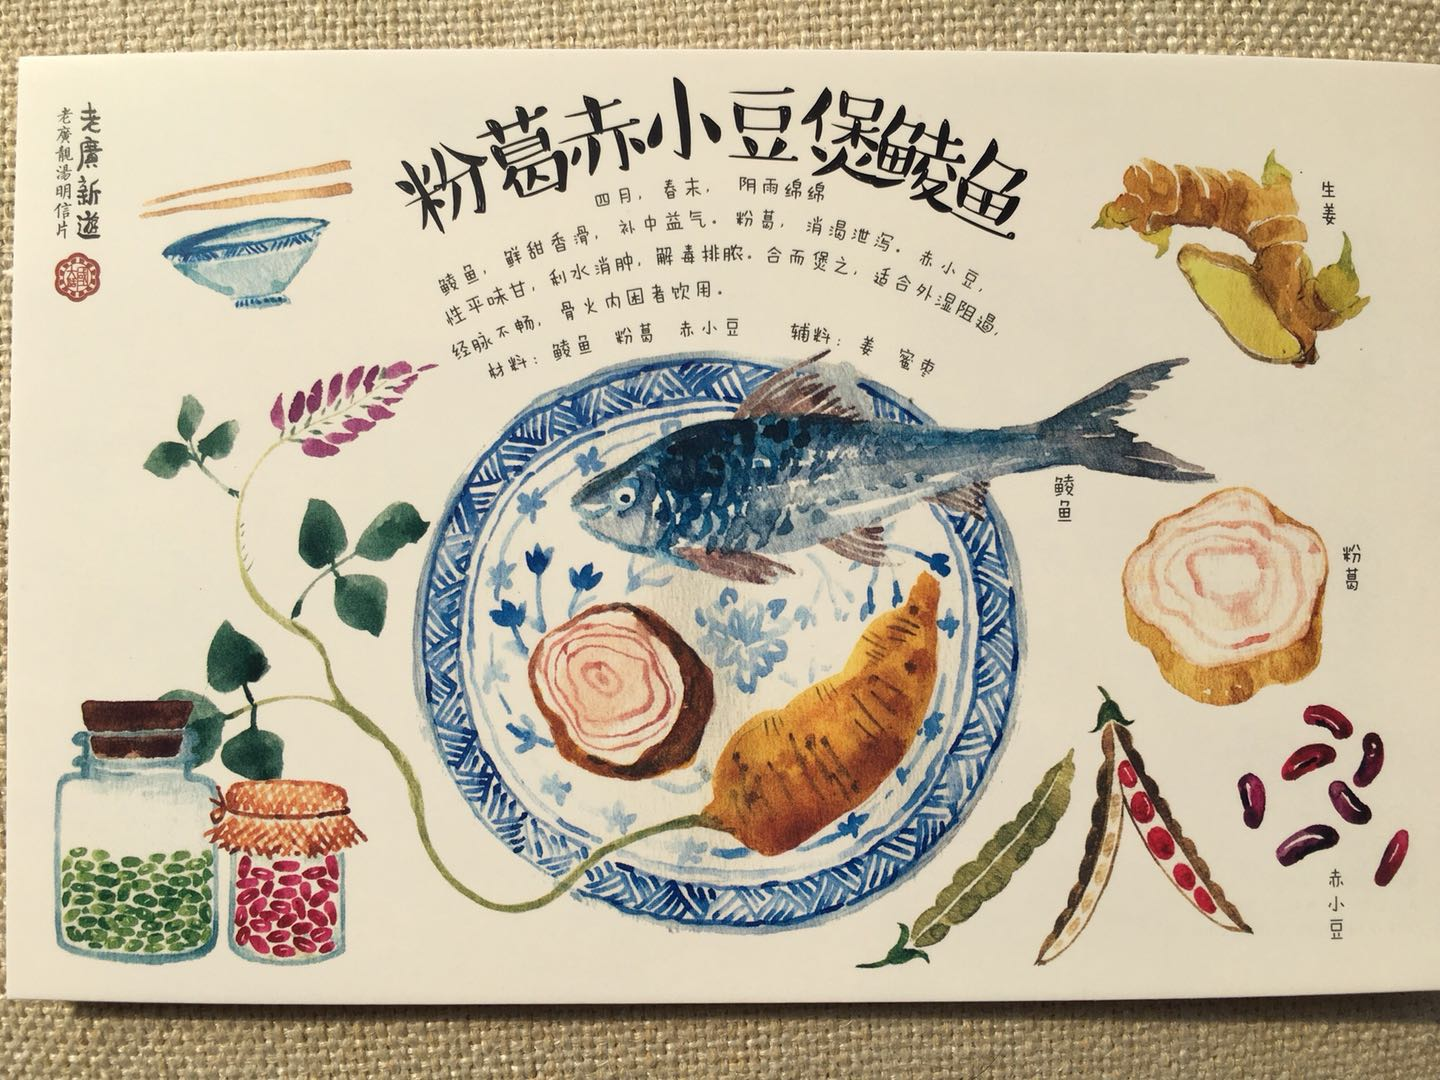 老廣新遊
老廣靚湯明信片
粉葛赤小豆煲鲮鱼
四月，春末， 阴雨绵绵
鲮鱼，鲜甜香滑，补中益气。粉葛，消渴泄泻。赤小豆，
性平味甘，利水消肿，解毒排脓。合而煲之，适合外湿阻遏，
经脉不畅，骨火内困者饮用。
材料：鲮鱼 粉葛 赤小豆 辅料：姜 蜜枣
生姜
鲮鱼
粉葛
赤小豆